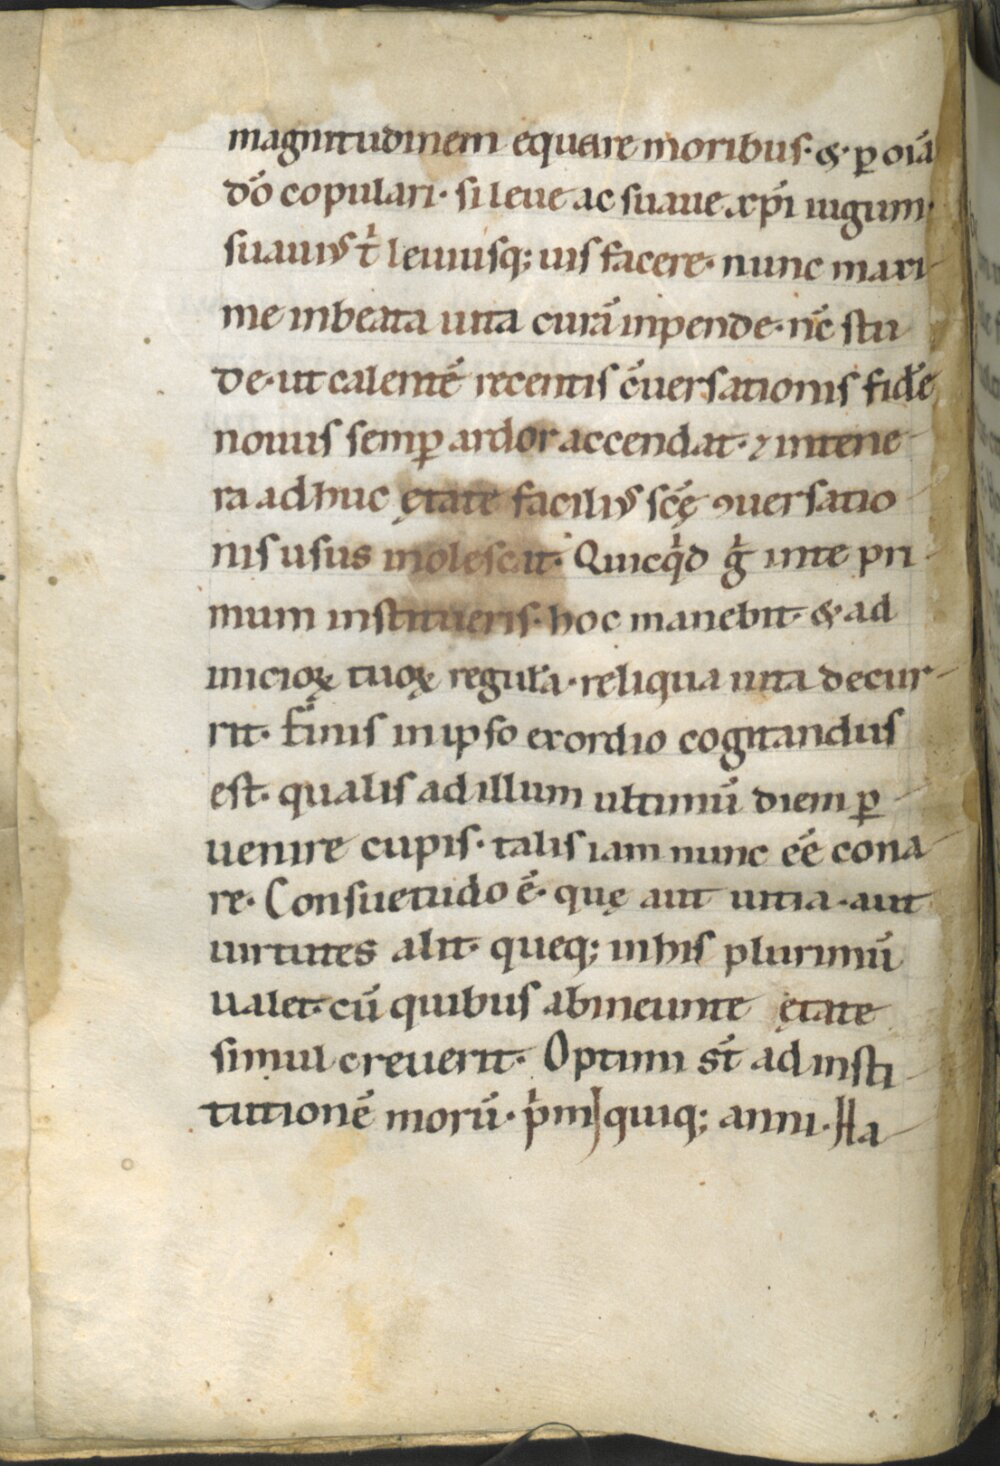 magnitudinem equare moribus· &· ꝑ oīa
dō copulari· si leue ac suaue xp̄i iugum·
suauiꝰ tͥ leuiusq; uis facere· nunc maxi
me inbeata uita curā inpende· nc̄ stu
de· ut calentē recentis c̄uersationis fidē
nouus semꝑ ardor accendat· ⁊ intene
ra adhuc ętate faciliꝰ scę̄ ꝯuersatio
nis usus inolescit· Quicqͥd gͥ inte pri
mum institueris· hoc manebit· &· ad
inicioꝝ tuoꝝ regula· reliqua uita decur
rit· Finis inipso exordio cogitandus
est· qualis adillum ultimū diem ꝑ
uenire cupis· talis iam nunc eē cona
re· Consuetudo ē· quę aut uitia· aut
uirtutes alit· queq; inhis plurimū
ualet· cū quibus abineunte ętate
simul creuerit· Optimi st̄ ad insti
tutionē morū· pͥmi quiq; anni· Ha